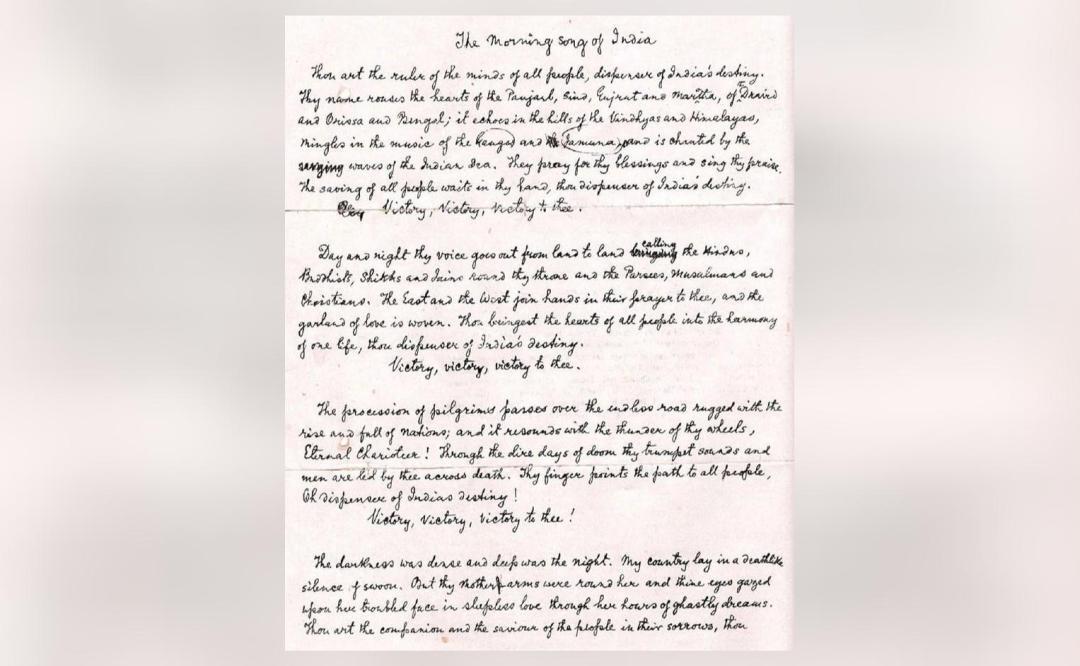 The Morning song of India
Thou art the ruler of the minds of all people, dispenser of India's destiny.
Thy name rouses the hearts of the Panjaub, Sind, Gujrat and Maratha, of Dravid
and Orissa and Bengal; it echoes in the hills of the Vindhyas and Himalayas,
mingles in the music of the Ganges and Jamuna, and is chanted by the
surging waves of the Indian Sea. They pray for thy blessings and sing thy praise.
The saving of all people waits in thy hand, thou dispenser of India's destiny.
Victory, Victory, Victory to thee.
Day and night thy voice goes out from land to land calling the Hindus,
Buddhists, Shikhs and Jains round thy throne and the Parsees, Musulmans and
Christians. The East and the West join hands in their prayer to thee, and the
garland of love is woven. Thou bringest the hearts of all people into the harmony
of one life, thou dispenser of India's destiny.
Victory, victory, victory to thee.
The procession of pilgrims passes over the endless road rugged with the
rise and fall of nations; and it resounds with the thunder of thy wheels,
Eternal Charioteer! Through the dire days of doom thy trumpet sounds and
men are led by thee across death. Thy finger points the path to all people,
Oh dispenser of Indias destiny!
Victory, Victory, Victory to thee!
The darkness was dense and deep was the night. My country lay in a deathlike
silence of swoon. But thy mother arms were round her and thine eyes gazed
upon her troubled face in sleepless love through her hours of ghastly dreams.
Thou art the companion and the saviour of the people in their sorrows, thou